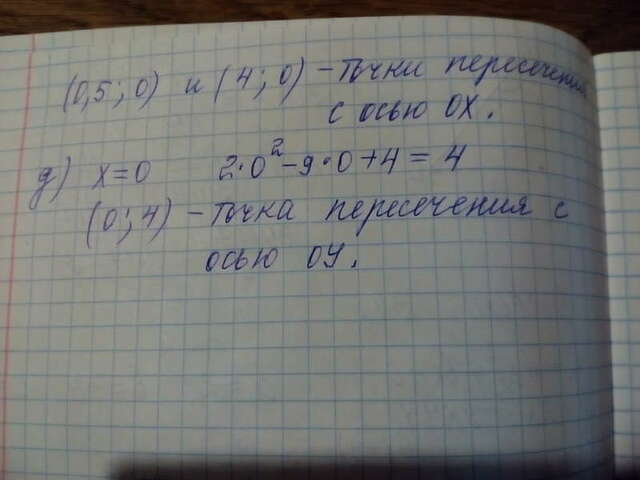 (0,5; 0) и (4; 0) - точки пересечения
с осью OX.
д) x=0 2·0²-9·0+4=4
(0; 4) - точка пересечения с
осью ОУ.